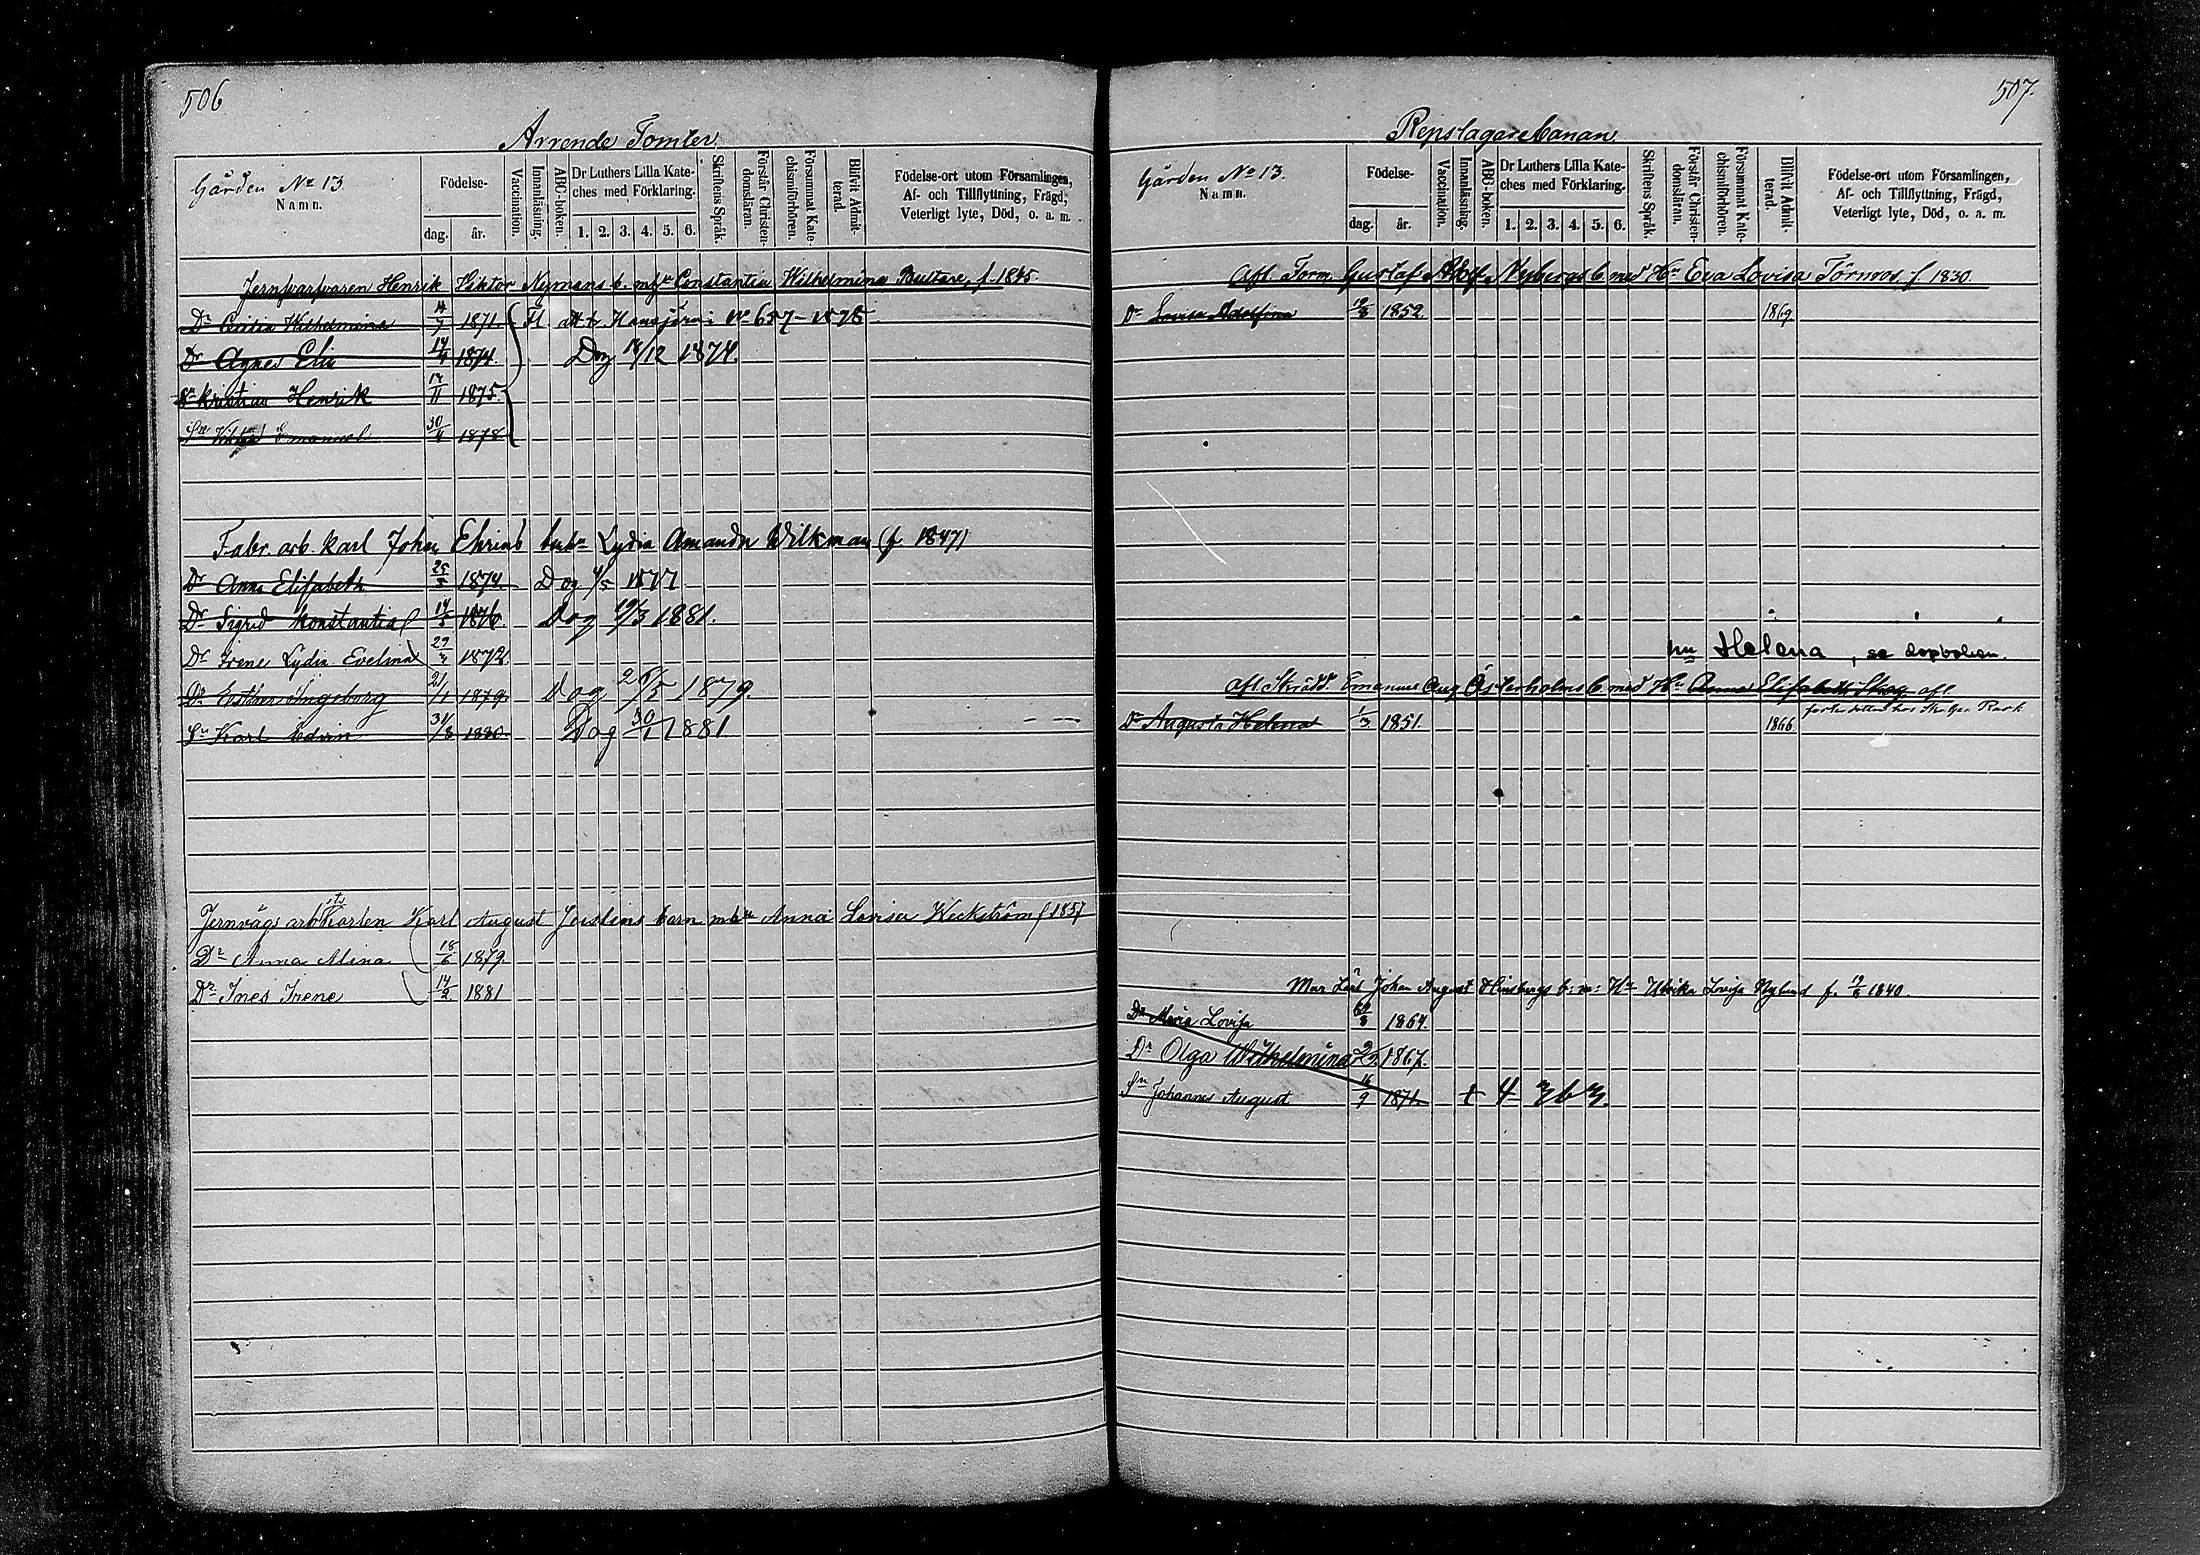 506
Arrende Tomter
Gården No 13
Namn.
Födelse-
dag.
år.
Vaccination.
Innanläsning.
ABC-boken.
Dr Luthers Lilla Kate-
ches med Förklaring.
1. 2. 3. 4. 5. 6.
Skriftens Språk.
Förstår Christen-
domsläran.
Försummat Kate-
chismiförhören.
Blifvit Admit-
terad.
Födelse-ort utom Församlingen,
Af- och Tillflyttning, Frägd,
Veterligt lyte, Död, o. a. m.
Henrik Viktor Nymans b. Constantia Wilhelmina f. 1845
Dr Cecilia Wilhelmina 1871. 657 - 1878
Dr Agnes Elin 1874. Dog 1874.
Sn Kristian Henrik 17/11 1875.
Sn Emanuel 1878
Fabr. arb. Karl Johan Lydia Amanda Wilkman (f. 1847)
Dr Anna Elisabeth 25/5 1874. Dog 4/5 1877
Dr Sigrid Konstantia 1876. Dog 19/3 1881.
Dr Irene Lydia Evelina 1872.
Dr Esther Ingeborg 21/1 1879. Dog 1879.
Sn Karl Edvin 31/8 1880. Dog 30/1 1881
Jernvägs arb Karl August barn Anna Lovisa Weckström f 1857
Dr Anna Alina 18/6 1879.
Dr Ines Irene 14/2 1881
507.
Repslagarebanan.
Gården No 13.
Namn.
Födelse-
dag.
år.
Vaccination.
Innanläsning.
ABC-boken.
Dr Luthers Lilla Kate-
ches med Förklaring.
1. 2. 3. 4. 5. 6.
Skriftens Språk.
Förstår Christen-
domsläran.
Försummat Kate-
chismiförhören.
Blifvit Admit-
terad.
Födelse-ort utom Församlingen,
Af- och Tillflyttning, Frägd,
Veterligt lyte, Död, o. a. m.
Afl. Form. Gustaf Adolf Nybergs b med Hu Eva Lovisa Törnroos. f 1830.
Dr Lovisa Adolfina 1852 1869
Helena, se dopboken.
Afl. Skrädd. Emanuel Aug Österholms b med Hu Anna Elisabeth afl.
Dr Augusta Helena 1/3 1851. 1866
Johan August b: m: Hu Ulrika Lovisa Nylund f. 1840.
Dr Maria Lovisa 1864.
Dr Olga Wilhelmina 1867.
Sn Johannes August 16/9 1871.